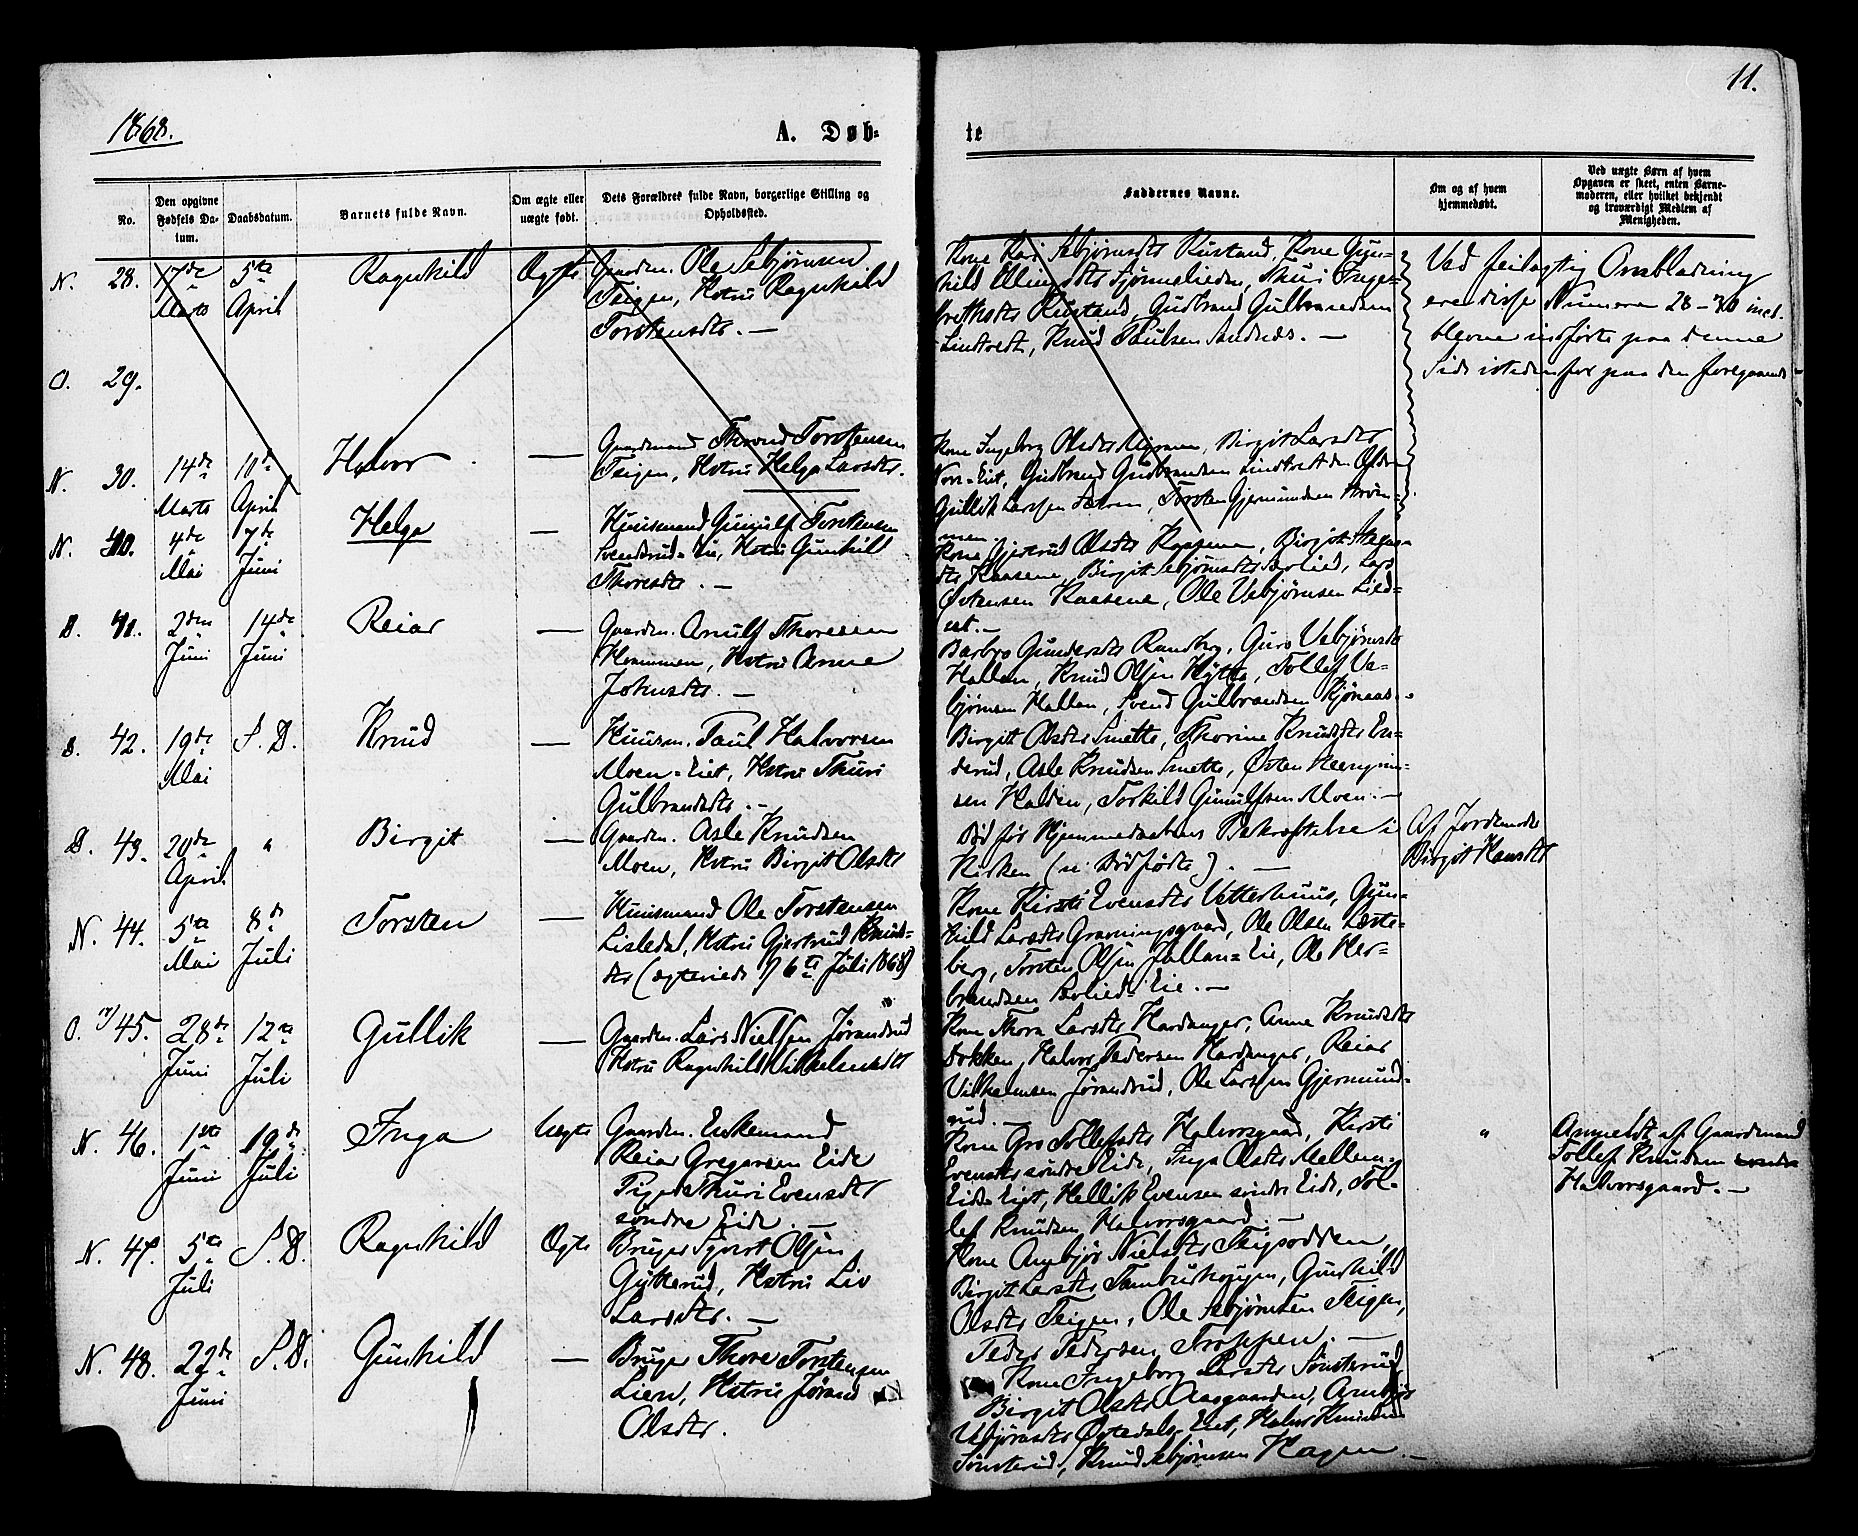 1868.
A. Døb-
te
11.
No.
Den opgivne Fødsels Da-
tum.
Daabsdatum.
Barnets fulde Navn.
Om ægte eller
uægte født.
Dets Forældres fulde Navn, borgerlige Stilling og
Opholdssted.
Faddernes Navne.
Om og af hvem
hjemmedøbt.
Ved uægte Børn af hvem
Opgaven er skeet, enten Barne-
moderen, eller hvilket bekjendt
og troværdigt Medlem af
Menigheden.
N. 28. 17de Marts 5te April Ragnhild Ægte Gaardm. Ole Sebjørnsen
Teigen, Hstru Ragnhild
Torstensdtr. —
Kone Kari Sebjørnsdtr Rustand, Kone Gun-
hild Ellingsdtr
brethsdtr Rustand, Gudbrand Gulbrandsen
Lindtvedt, Knud Paulsen
Ved feilagtig Ombladning
ere disse Numere 28-30 incl.
blevne indførte paa denne
Side istedenfor paa den foregaaende
O. 29.
N. 30. 14de Marts 10de April Halvor — Gaardmand Thrond Torstensen
Teigen, Hstru Helga Larsdtr.
Kone Ingeborg Olsdtr Birgit Larsdtr
Gudbrand Gudbrandsen Lindtvedt
Gullik Larssen Torsten Gjermundsen Strøm-
men.
N. 40. 4de Mai 7de Juni Helga — Huusmand Gunulf Torstensen
Svendsrud-Eie, Hstru Gunhild
Thoresdtr. —
Kone Gjertrud Olsdtr Birgit
Kaasene, Birgit Sebjørnsdtr Bølied, Lars
Østensen Kaasene, Ole Vebjørnsen Lied-
eet. —
D. 41. 2den Juni 14de Juni Reiar — Gaardm. Arnulf Thoresen
Hemmen, Hstru Anne
Johnsdtr. —
Barbro Gundersdtr Rundberg, Guro Vebjørnsdtr
Hallen, Knud Olsen Hytta, Tollef Ve-
bjørnsen Hallen, Svend Gulbrandsen Kjønaas.
D. 42. 19de Mai S.D. Knud — Huusm. Paul Halvorsen
Moen-Eiet, Hstru Thuri
Gulbrandsdtr. —
Birgit Olsdtr Smette, Thorine Knudsdtr En-
derud, Asle Knudsen Smette, Østen
sen Halden, Torkild Gunulfsen Moen. —
D. 43. 20de April " Birgit — Gaardm. Asle Knudsen
Moen, Hstru Birgit Olsdtr
Død før Hjemmedaabens Bekræftelse i
Kirken (ei dødfødt). —
Af Jordemoder
Birgit Hansdtr
N. 44. 5te Mai 8de Juli Torsten — Huusmand Ole Torstensen
Lisledal, Hstru Gjertrud Knuds-
dtr (ægteviede 6te Juli 1868)
Kone Kirsti Evensdtr Vetterhuus, Gun-
hild Larsdtr Gravningsgaard, Ole Olsen Læste-
berg, Torsten Olsen Jallan-Eie, Ole Her-
brandsen Bølied-Eie. —
O. 45. 28de Juni 12te Juli Gullik — Gaardm. Lars Nielsen Jørandrud
Hstru Ragnhild Vilhelmsdtr
Kone Thora Larsdtr Hardanger, Anne Knudsdtr
Dokken, Halvor Pedersen Hardanger, Reiar
Vilhelmsen Jørandrud, Ole Larssen Gjermund-
rud. —
N. 46. 1ste Juni 19de Juli Inga Uægte Gaardm. Enkemand
Reiar Gregersen Eide
Pige Thuri Evensdtr
søndre Eide. —
Kone Gro Tollefsdtr Halvorsgaard, Kirsti
Evensdtr søndre Eide, Inga Olsdtr Mellem-
Eide-Eiet, Hellik Evensen søndre Eide, Tol-
lef Knudsen Halvorsgaard. —
"
Anmeldt af Gaardmand
Tollef Knudsen
Halvorsgaard. —
N. 47. 5te Juli S.D. Ragnhild Ægte Bruger Syvert Olsen
Gytterud, Hstru Liv
Larsdtr. —
Kone Ambjør Nielsdtr Teigsodden,
Birgit Larsdtr Tamburhougen, Gunhild
Olsdtr Teigen, Ole Sebjørnsen Teigen,
Peder Pedersen Troppen. —
N. 48. 22de Juni S.D. Gunhild — Bruger Thore Torstensen
Lien, Hstru Jørand
Olsdtr.
Kone Ingeborg Larsdtr Sønsterud,
Birgit Olsdtr Aasgaarden, Ambjør
Vebjørnsdtr Øvredals-Eiet, Halvor Knudsen
Sønsterud, Knud Sebjørnsen Hagen. —